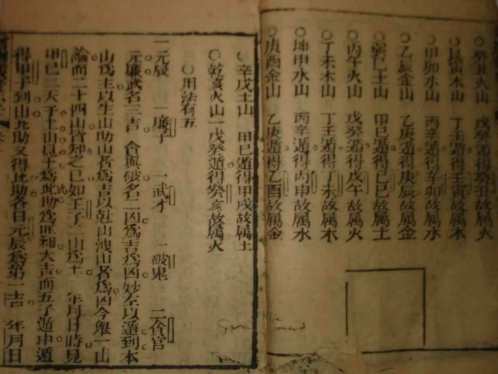 ○癸丑火山
○艮寅木山　丁壬遁得壬寅故屬木
○甲卯水山　丙辛遁得辛卯故屬水
○乙辰金山　乙庚遁得庚辰故屬金
○巽巳土山　甲己遁得己巳故屬土
○丙午火山　戊癸遁得戊午故屬火
○丁未木山　丁壬遁得丁未故屬木
○坤申水山　丙辛遁得丙申故屬水
○庚酉金山　乙庚遁得乙酉故屬金
○辛戌土山　甲己遁得甲戌故屬土
○乾亥火山　戊癸遁得癸亥故屬火
○用法有五
一元辰　一廉子　一武才　一破鬼　一食官
元辰廉武名三吉　食與破名二凶爲吉爲凶妙在以遁到本
山爲主以生山助山者爲吉以尅山洩山者爲凶今舉一山
論而二十四山皆如之已如壬子二山爲土　年月日時見
甲己二天子土山以土爲比助爲旺相大吉而五子遁中遁
得甲子到山爲助又得比助名曰元辰爲第一吉　年月日